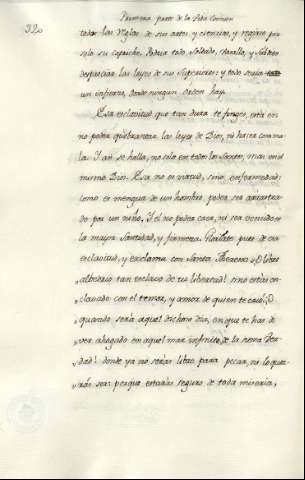 Primera parte de la Vida Comun
32
todas las reglas de sus artes, y ciencias, y regirse por
solo su capricho. Podria todo Soldado, Vasallo, y Subdito
despreciar las leyes de sus Superiores: y todo seria
un infierno, donde ningun orden hay.
Esa esclavitud que tan dura te finges, está en
no poder quebrantar las leyes de Dios, ni hacer cosa ma-
la. Y así se halla, no solo en todos los Santos, mas en el
mismo Dios. Esa no es virtud, sino enfermedad:
como es mengua de un hombre poder ser
do por un niño. Y el no poder caer, ni ser vencido es
la mayor Santidad, y firmeza. Rïete pues de esa
esclavitud, y exclama con Santa Theresa: O libre
albedrio tan esclavo de tu libertad! sino estás en-
clavado con el temor, y amor de quien te crió: O
quando será aquel dichoso dia, en que te has de
ver ahogado en aquel mar infinito de la suma Ver-
dad! donde ya no serás libre para pecar, ni lo que-
rrás ser: porque estarás seguro de toda miseria,